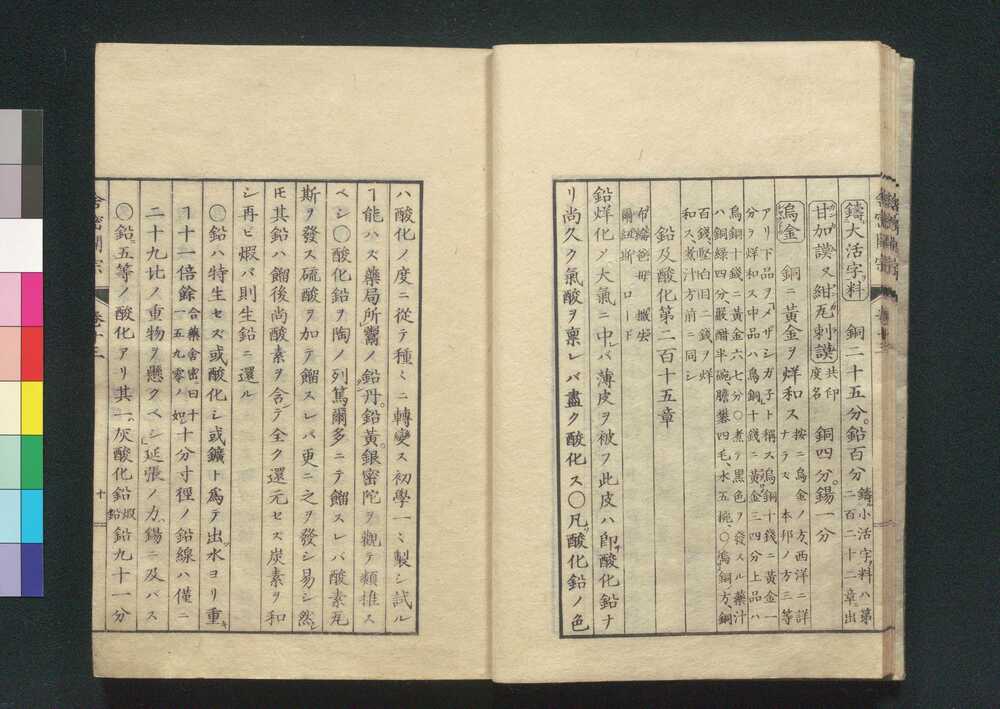 鑄大活字料 銅二十五分。鉛百分 鑄小活字料ハ第
二百二十二章出
甘加謨又紺瓦刺謨 共印
度名 銅四分。錫一分
烏金 銅ニ黃金ヲ烊和ス 按ニ烏金ノ方、西洋ニ詳
ナラズ 本邦ノ方三等
アリ下品ヲ「メザシガ子ト稱ス烏銅十錢ニ黃金一
分ヲ烊和ス中品ハ烏銅十錢ニ黃金三四分上品ハ
烏銅十錢ニ黃金六七分〇煮テ黑色ヲ發スル藥汁
ハ銅綠四分、嚴醋半碗、膽礬四毛、水五椀、〇烏銅方、銅
百錢、堅白目二錢ヲ烊
和ス、煮汁方前ニ同シ
鉛及酸化第二百十五章
鉛烊化シ大氣ニ中レバ薄皮ヲ被フ此皮ハ卽酸化鉛ナ
リ尚久ク氣酸ヲ稟レバ盡ク酸化ス〇凡酸化鉛ノ色
ハ酸化ノ度ニ從テ種々ニ轉變ス初學一々製シ試ル
ヿ能ハズ藥局所鬻ノ鉛丹。鉛黃。銀密陀ヲ觀テ類推ス
ベシ〇酸化鉛ヲ陶ノ列篤爾多ニテ餾スレバ酸素瓦
斯ヲ發ス硫酸ヲ加テ餾スレバ更ニ之ヲ發シ易シ然
モ其鉛ハ餾後尚酸素ヲ含テ全ク還元セズ炭素ヲ和
シ再ビ煆バ則生鉛ニ還ル
〇鉛ハ特生セズ或酸化シ或鑛ト爲テ出水ヨリ重キ
ヿ十一倍餘 合藥舍密曰十
一五九零ノ如 十分寸徑ノ鉛線ハ僅ニ
二十九比ノ重物ヲ懸クベシ延張ノ力、錫ニ及バズ
〇鉛ニ五等ノ酸化アリ其一、灰酸化鉛 煆
鉛 鉛九十一分
舍密開宗 卷十三 十